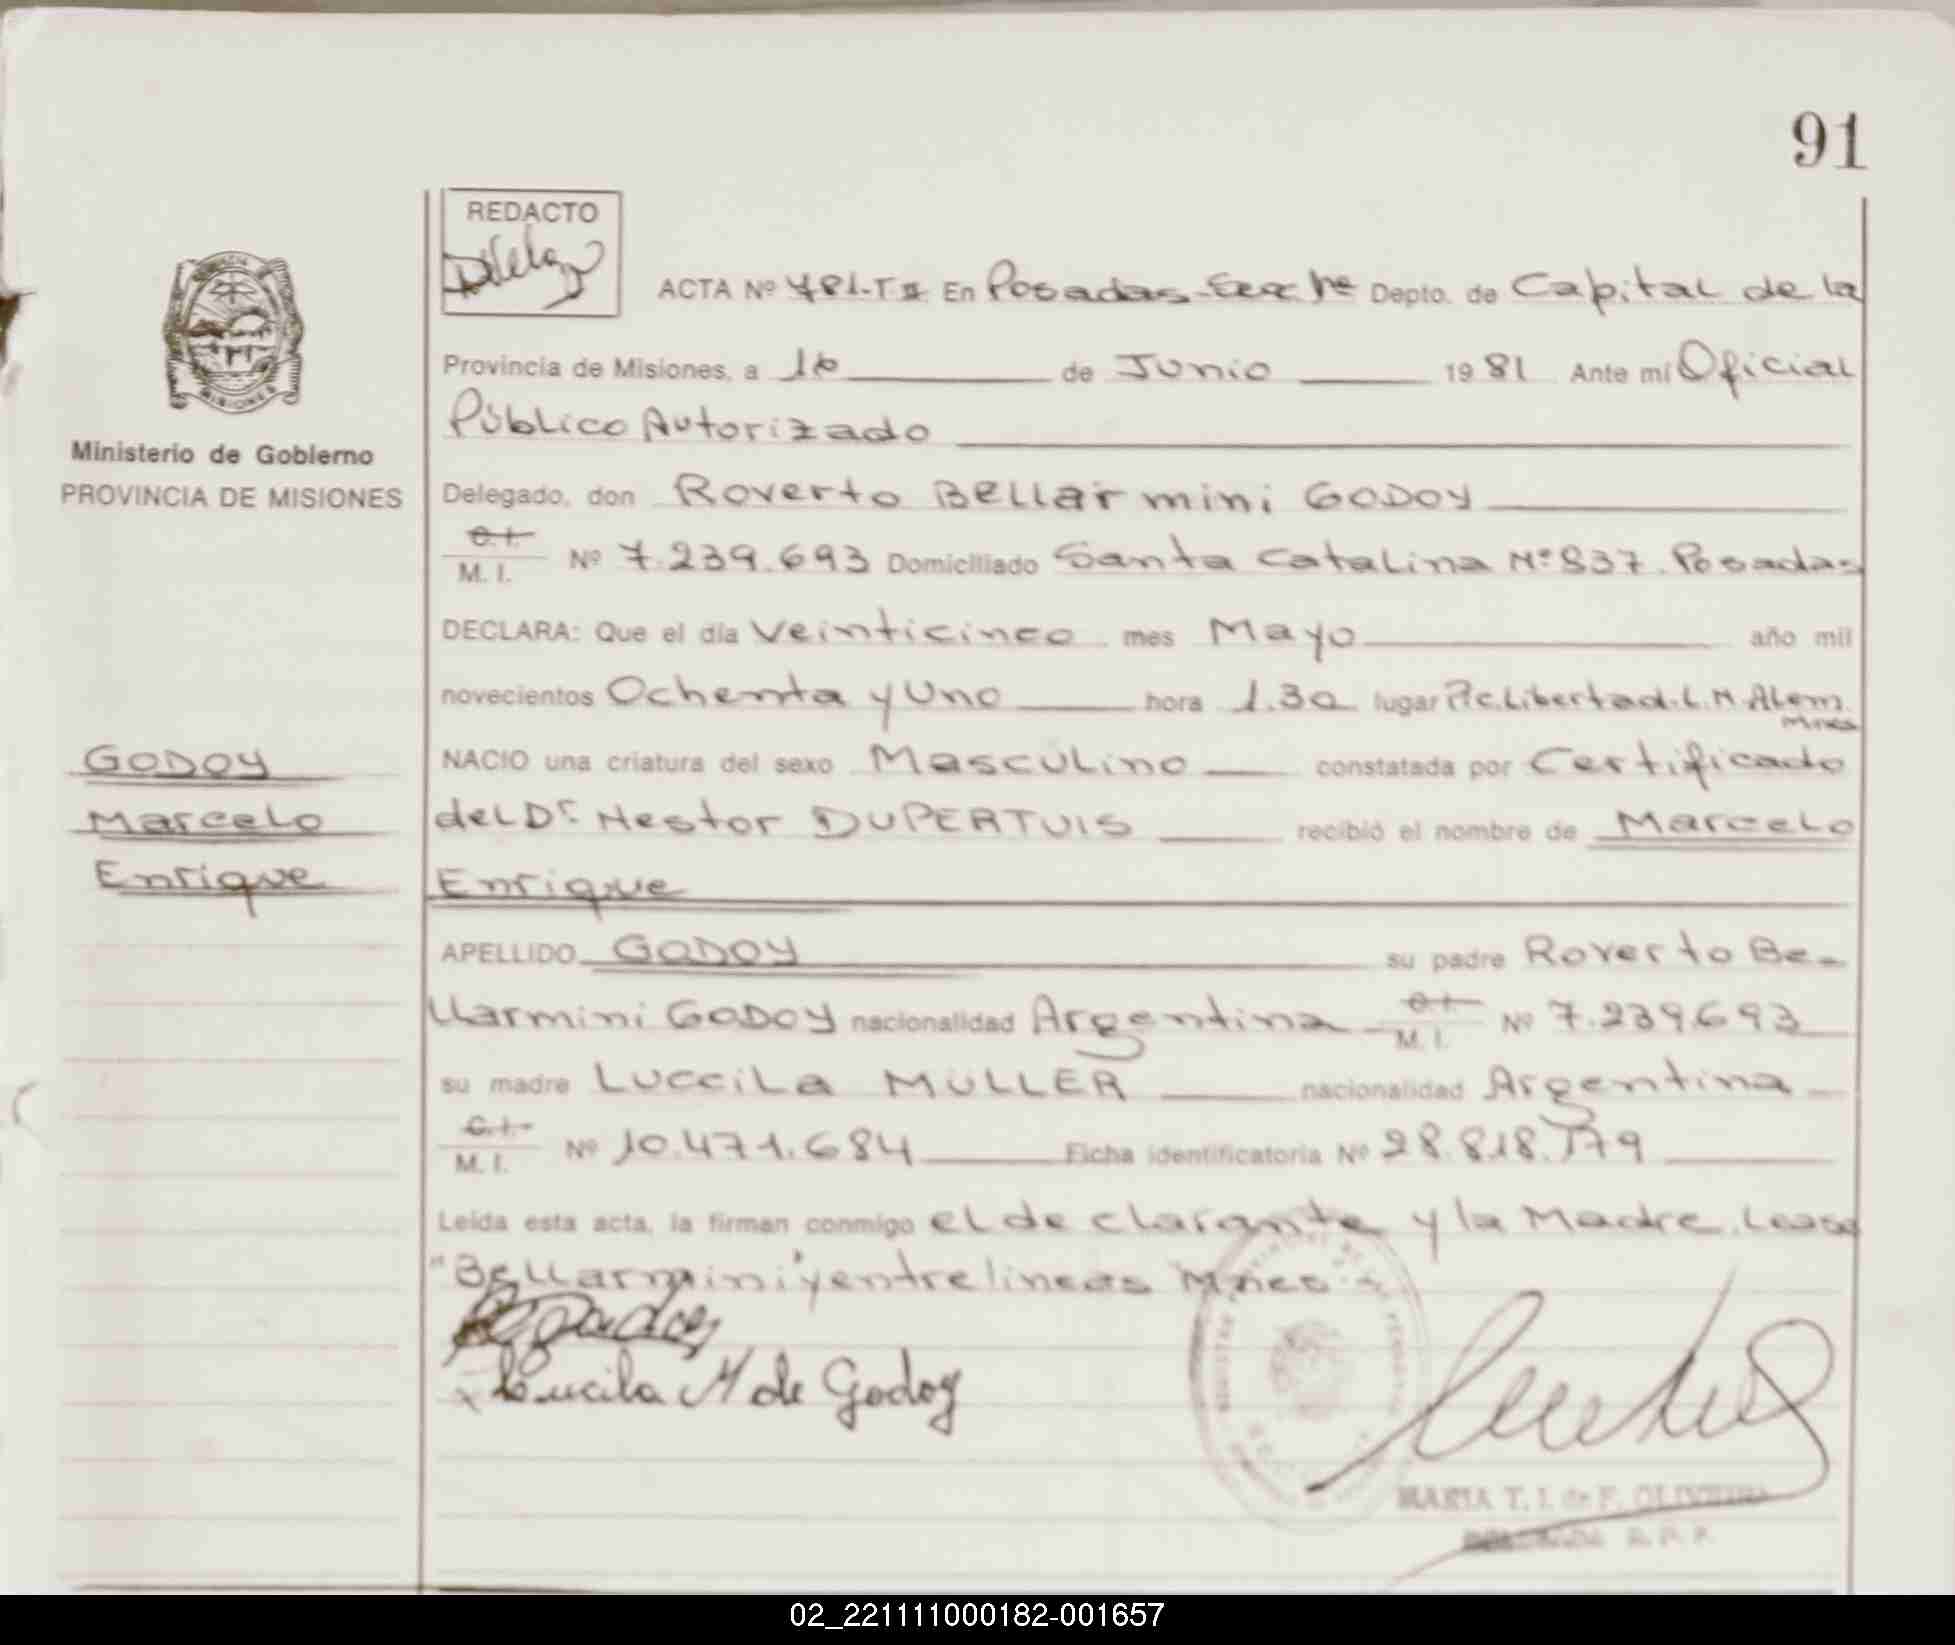 91
REDACTO
ACTA Nº 481-TII En Posadas-Secc 1ª Depto. de Capital de la
Provincia de Misiones, a 16 de Junio 1981 Ante mí Oficial
Público Autorizado
Ministerio de Gobierno
PROVINCIA DE MISIONES
Delegado, don Roverto Bellarmini GODOY
C.I.
M. I. Nº 7.239.693 Domiciliado Santa Catalina Nº 837. Posadas
DECLARA: Que el día Veinticinco mes Mayo año mil
novecientos Ochenta y Uno hora 1.30 lugar Pte. Libertad. L. N. Alem.
Mnes
GODOY
Marcelo
Enrique
NACIO una criatura del sexo Masculino constatada por Certificado
del Dr. Nestor DUPERTUIS recibió el nombre de Marcelo
Enrique
APELLIDO GODOY su padre Roverto Be-
llarmini GODOY nacionalidad Argentina C.I.
M. I. Nº 7.239.693
su madre Luccila MÜLLER nacionalidad Argentina
C.I.
M. I. Nº 10.471.684 Ficha identificatoria Nº 28.818.779
Leída esta acta, la firman conmigo el declarante y la Madre. Lease
"Bellarmini" y entre lineas Mnes.
Lucila M de Godoy
MARIA T. I. de F. OLIVEIRA
DELEGADA R. P. P.
02_221111000182-001657